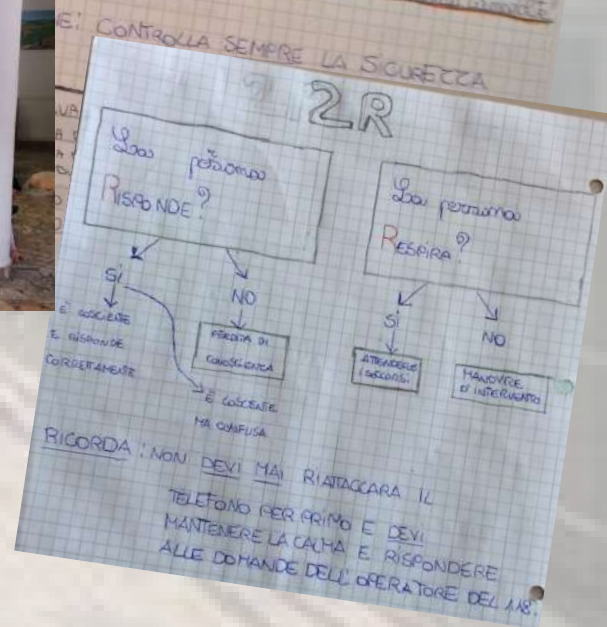 E: CONTROLLA SEMPRE LA SICUREZZA
2R
La persona
RISPONDE?
La persona
RESPIRA?
SI
NO
SI
NO
È COSCIENTE
E RISPONDE
CORRETTAMENTE
PERDITA DI
CONOSCIENZA
È COSCIENTE
MA CONFUSA
ATTENDERE
I SOCCORSI
MANOVRE
D'INTERVENTO
RICORDA: NON DEVI MAI RIATTACCARA IL
TELEFONO PER PRIMO E DEVI
MANTENERE LA CALMA E RISPONDERE
ALLE DOMANDE DELL'OPERATORE DEL 118.